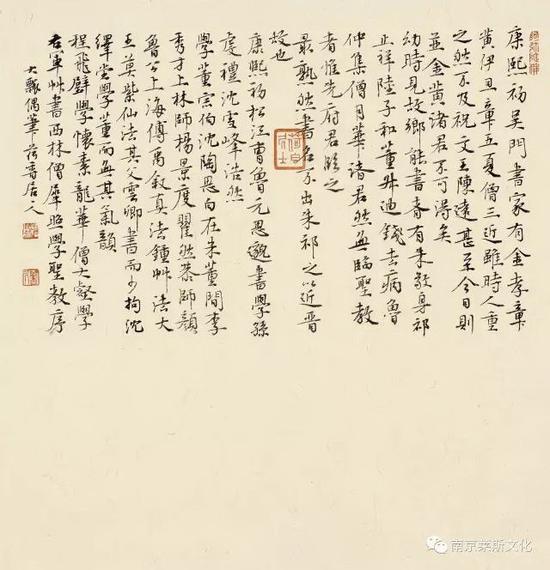 康熙初吴門書家有金孝章
黄伊丑章五夏僧三近雖時人重
之然不及祝文王陳遠甚至今日則
並金黄諸君不可得矣
幼時見故鄉能書者有朱敬身祁
止祥陸子和董叔迪錢去病魯
仲集僧月華諸君然無臨聖教
者惟先府君臨之
最熟然書名不出朱祁之以近晋
故也
康熙初松江曹魯元思邈書學孫
虔禮沈雪峰浩然
學董宗伯沈陶思向在朱董間李
秀才上林師楊景度翟然恭師顔
魯公上海傅尚叙真法鍾艸法大
王莫紫仙法其父雲卿書而少拘沈
繹堂學董而無其氣韻
程飛聲學懷素龍華僧大壑學
右軍艸書西林僧犀照學聖教序
大瓢偶筆 荷香居人
南京莱斯文化